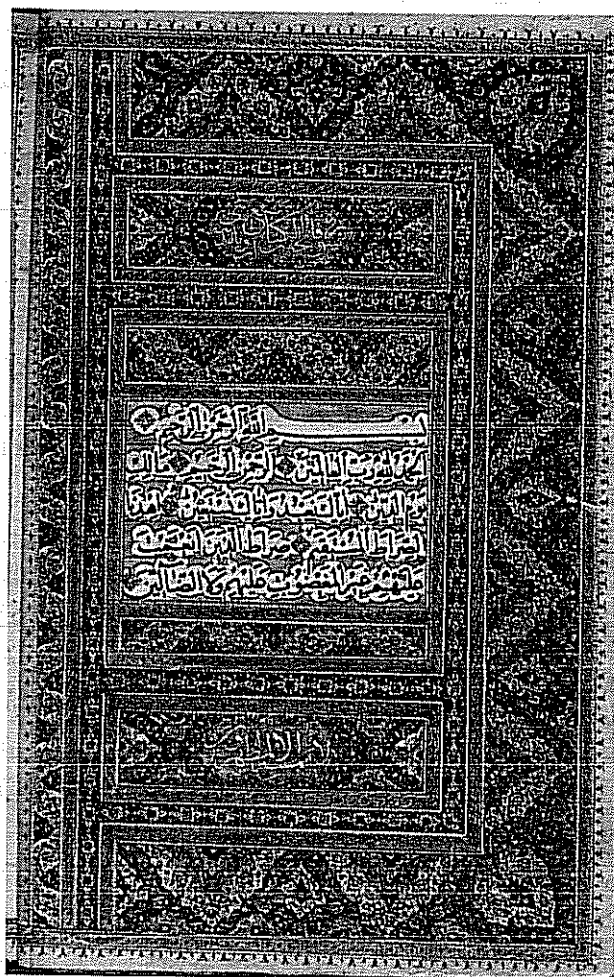 بسم الله الرحمن الرحيم
الحمد لله رب العالمين الرحمن الرحيم مالك
يوم الدين اياك نعبد واياك نستعين اهدنا
الصراط المستقيم صراط الذين انعمت
عليهم غير المغضوب عليهم ولا الضالين